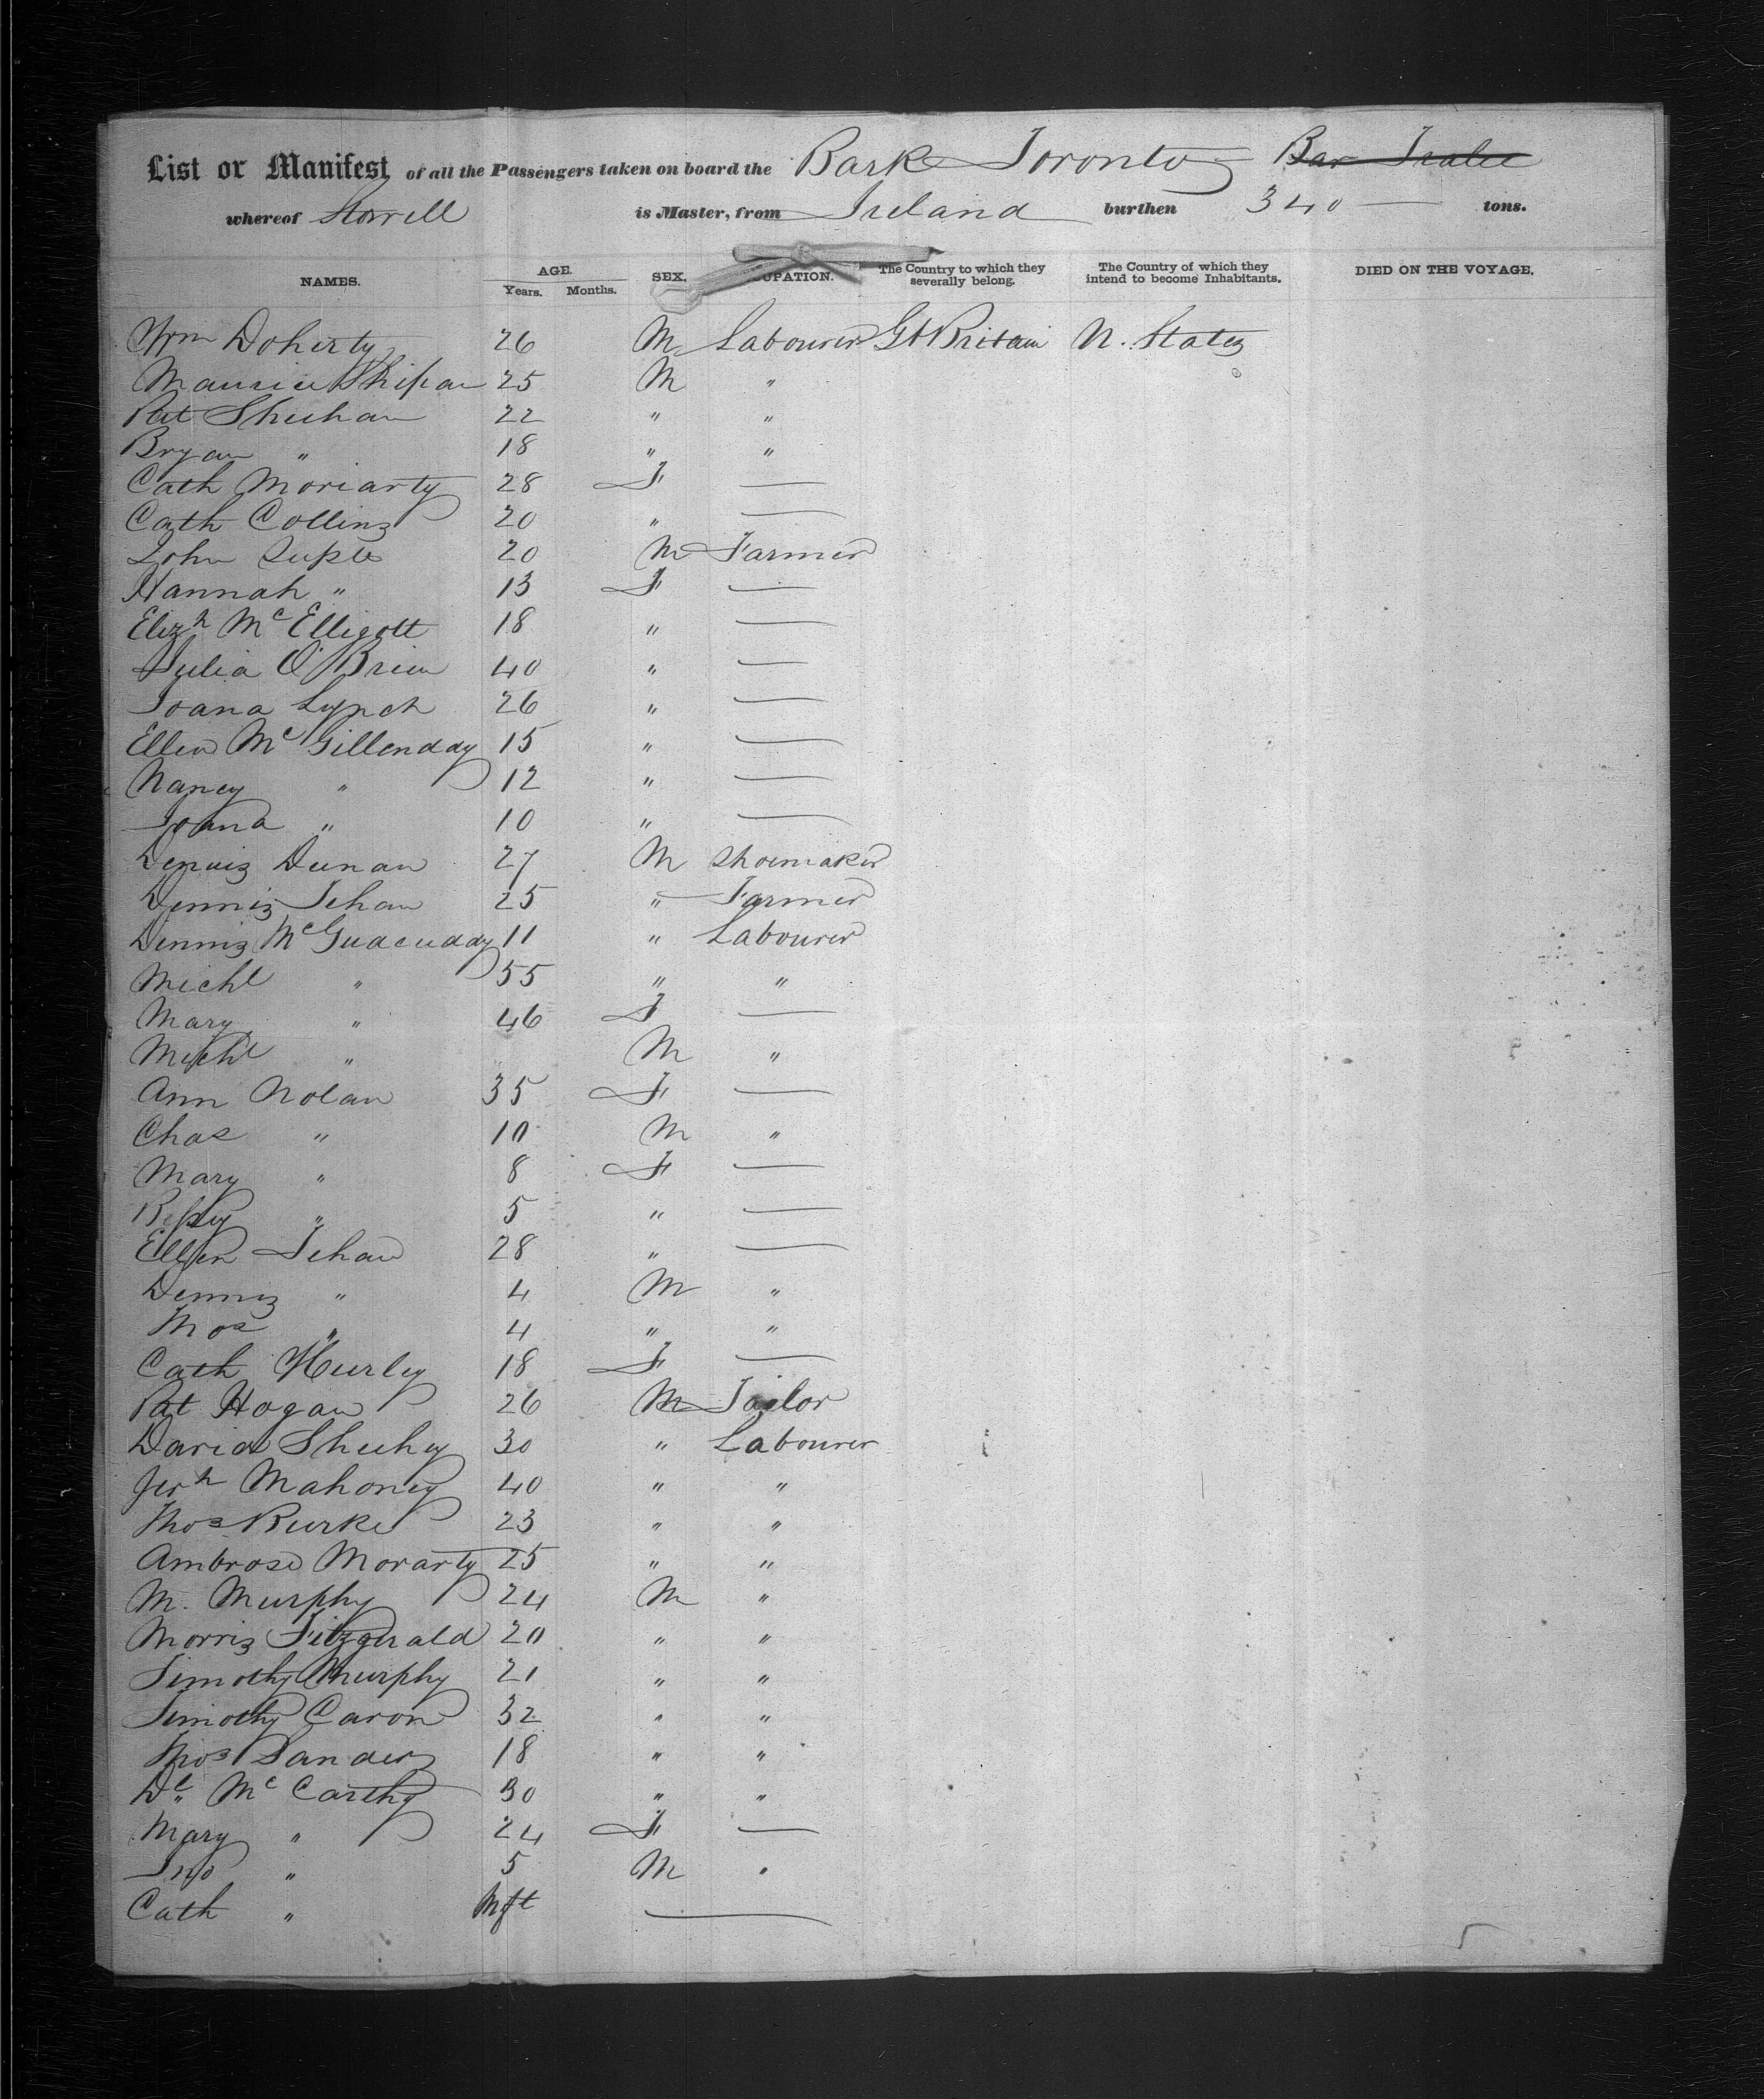 List or Manifest of all the Passengers taken on board the Bark Toronto Bar Tralee
whereof Storrell is Master, from Ireland burthen 340 tons.
NAMES. AGE. Years. Months. SEX. OCCUPATION. The Country to which they severally belong. The Country of which they intend to become Inhabitants. DIED ON THE VOYAGE.
Wm Doherty 26 M Labourer Gt Britain U. States
Maurice 25 M "
Pat Sheehan 22 " "
Bryan " 18 " "
Cath Moriarty 28 F —
Cath Collins 20 " —
John Suple 20 M Farmer
Hannah " 13 F —
Elizh McElligott 18 " —
Julia O'Brien 40 " —
Joana Lynch 26 " —
Ellen McGillenddy 15 " —
Nancy " 12 " —
Joana " 10 " —
Dennis Dunan 27 M Shoemaker
Dennis Tehan 25 " Farmer
Dennis 11 " Labourer
Michl " 55 " "
Mary " 46 F —
Michl " M "
Ann Nolan 35 F —
Chas " 10 M "
Mary " 8 F —
Bessy " 5 " —
Ellen Tehan 28 " —
Dennis " 4 M "
Thos " 4 " "
Cath Hurley 18 F —
Pat Hogan 26 M Tailor
David Sheehy 30 " Labourer
Jerh Mahoney 40 " "
Thos Burke 23 " "
Ambrose Morarty 25 " "
M. Murphy 24 M "
Morris Fitzgerald 20 " "
Timothy Murphy 21 " "
Timothy Caron 32 " "
Thos Sanders 18 " "
Dl McCarthy 30 " "
Mary " 24 F —
Jno " 5 M "
Cath " Inft —
5